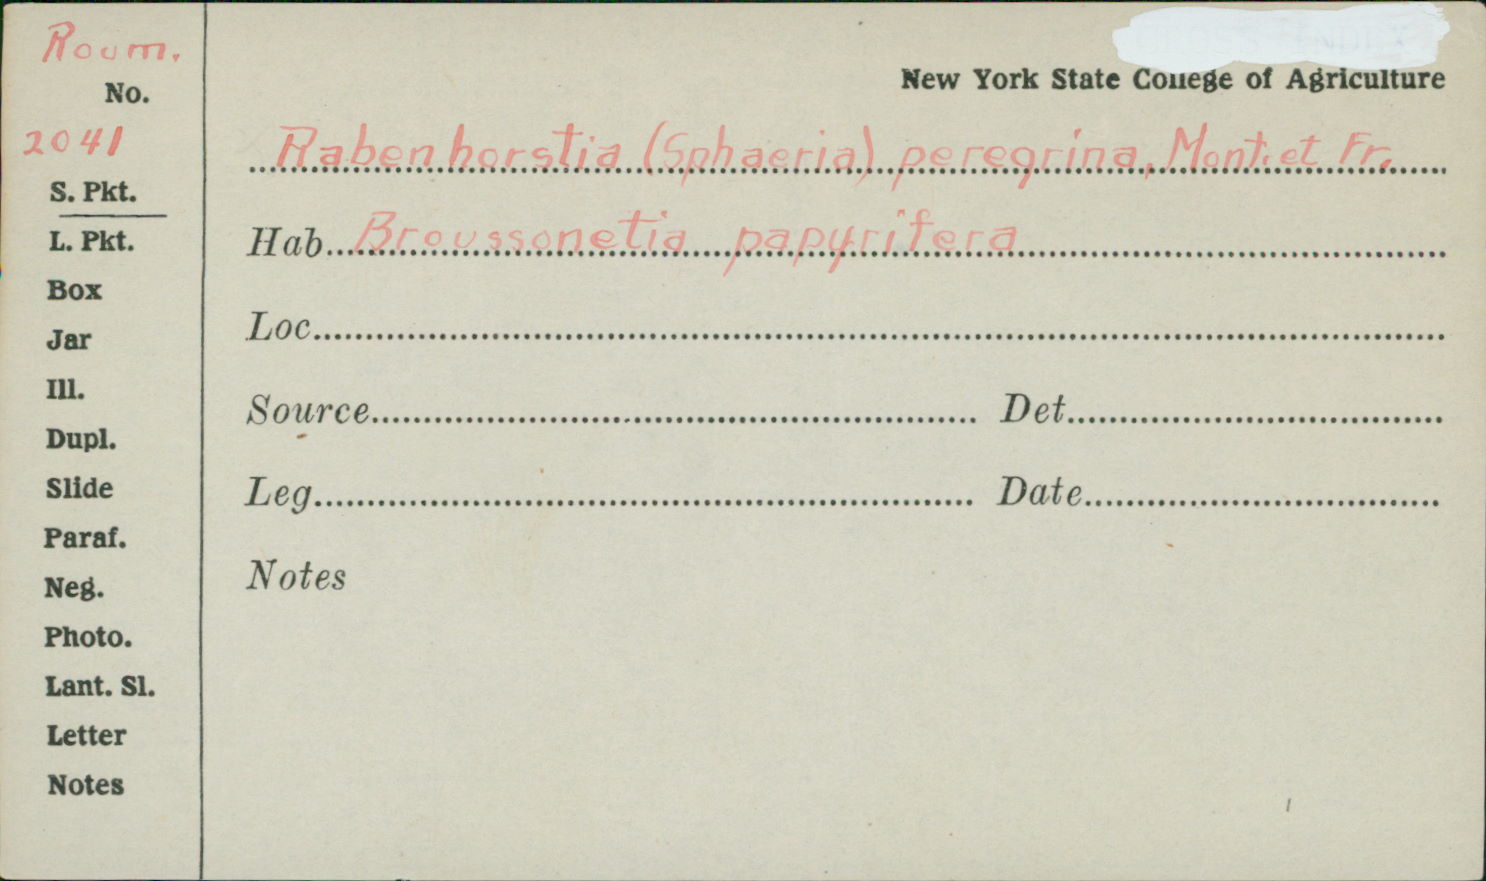 Roum.
No.
2041
S. Pkt.
L. Pkt.
Box
Jar
Ill.
Dupl.
Slide
Paraf.
Neg.
Photo.
Lant. Sl.
Letter
Notes
New York State College of Agriculture
Rabenhorstia (Sphaeria) peregrina, Mont. et Fr.
Hab Broussonetia papyrifera
Loc
Source Det
Leg Date
Notes